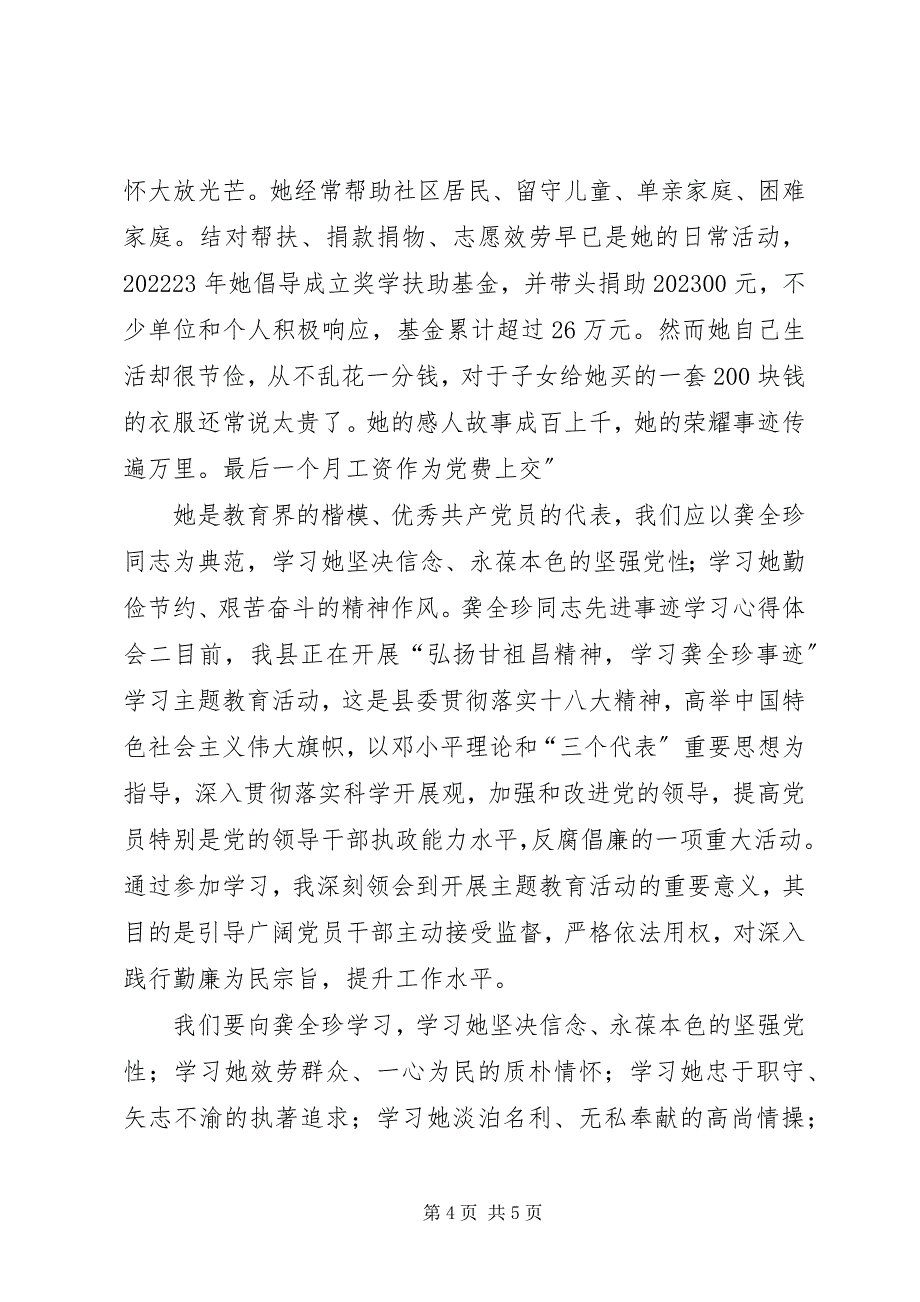 怀大放光芒。她经常帮助社区居民、留守儿童、单亲家庭、困难
家庭。结对帮扶、捐款捐物、志愿效劳早已是她的日常活动，
202223 年她倡导成立奖学扶助基金，并带头捐助 202300 元，不
少单位和个人积极响应，基金累计超过 26 万元。然而她自己生
活却很节俭，从不乱花一分钱，对于子女给她买的一套 200 块钱
的衣服还常说太贵了。她的感人故事成百上千，她的荣耀事迹传
遍万里。最后一个月工资作为党费上交〞
她是教育界的楷模、优秀共产党员的代表，我们应以龚全珍
同志为典范，学习她坚决信念、永葆本色的坚强党性；学习她勤
俭节约、艰苦奋斗的精神作风。龚全珍同志先进事迹学习心得体
会二目前，我县正在开展“弘扬甘祖昌精神，学习龚全珍事迹〞
学习主题教育活动，这是县委贯彻落实十八大精神，高举中国特
色社会主义伟大旗帜，以邓小平理论和“三个代表〞重要思想为
指导，深入贯彻落实科学开展观，加强和改进党的领导，提高党
员特别是党的领导干部执政能力水平，反腐倡廉的一项重大活动。
通过参加学习，我深刻领会到开展主题教育活动的重要意义，其
目的是引导广阔党员干部主动接受监督，严格依法用权，对深入
践行勤廉为民宗旨，提升工作水平。
我们要向龚全珍学习，学习她坚决信念、永葆本色的坚强党
性；学习她效劳群众、一心为民的质朴情怀；学习她忠于职守、
矢志不渝的执著追求；学习她淡泊名利、无私奉献的高尚情操；
第 4 页 共 5 页